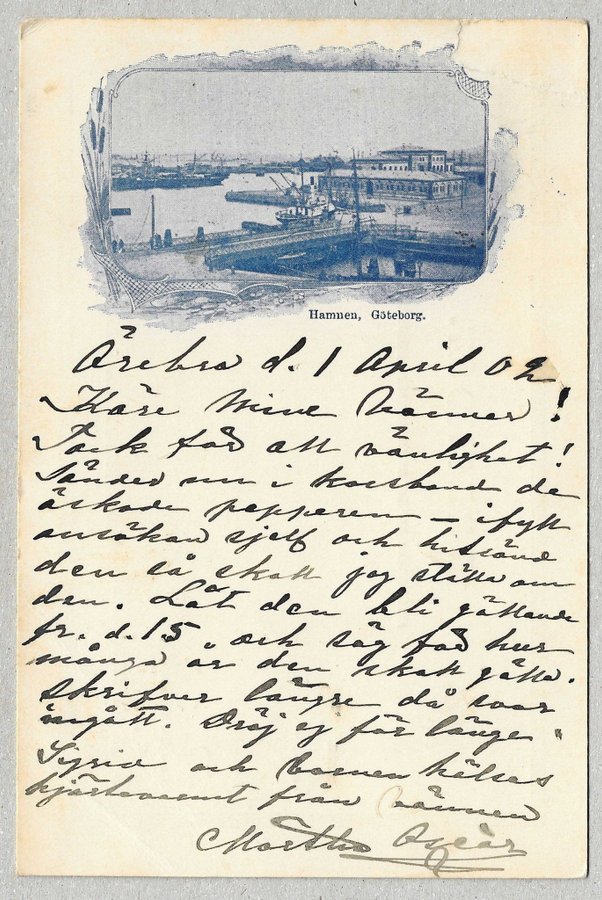 Hamnen, Göteborg.
Örebro d. 1 April 02
Käre Mine Vänner!
Tack för all vänlighet!
Sänder nu i korsband de
äskade papperen – ifyll
ansökan sjelf och hitsänd
den så skall jag ställa om
den. Låt den bli gällande
fr. d. 15, och säg för hur
många år den skall gälla.
Skrifver längre då svar
ingått. Dröj ej för länge.
Sigrid och barnen hälsas
hjärtevarmt från vännen
Oscar